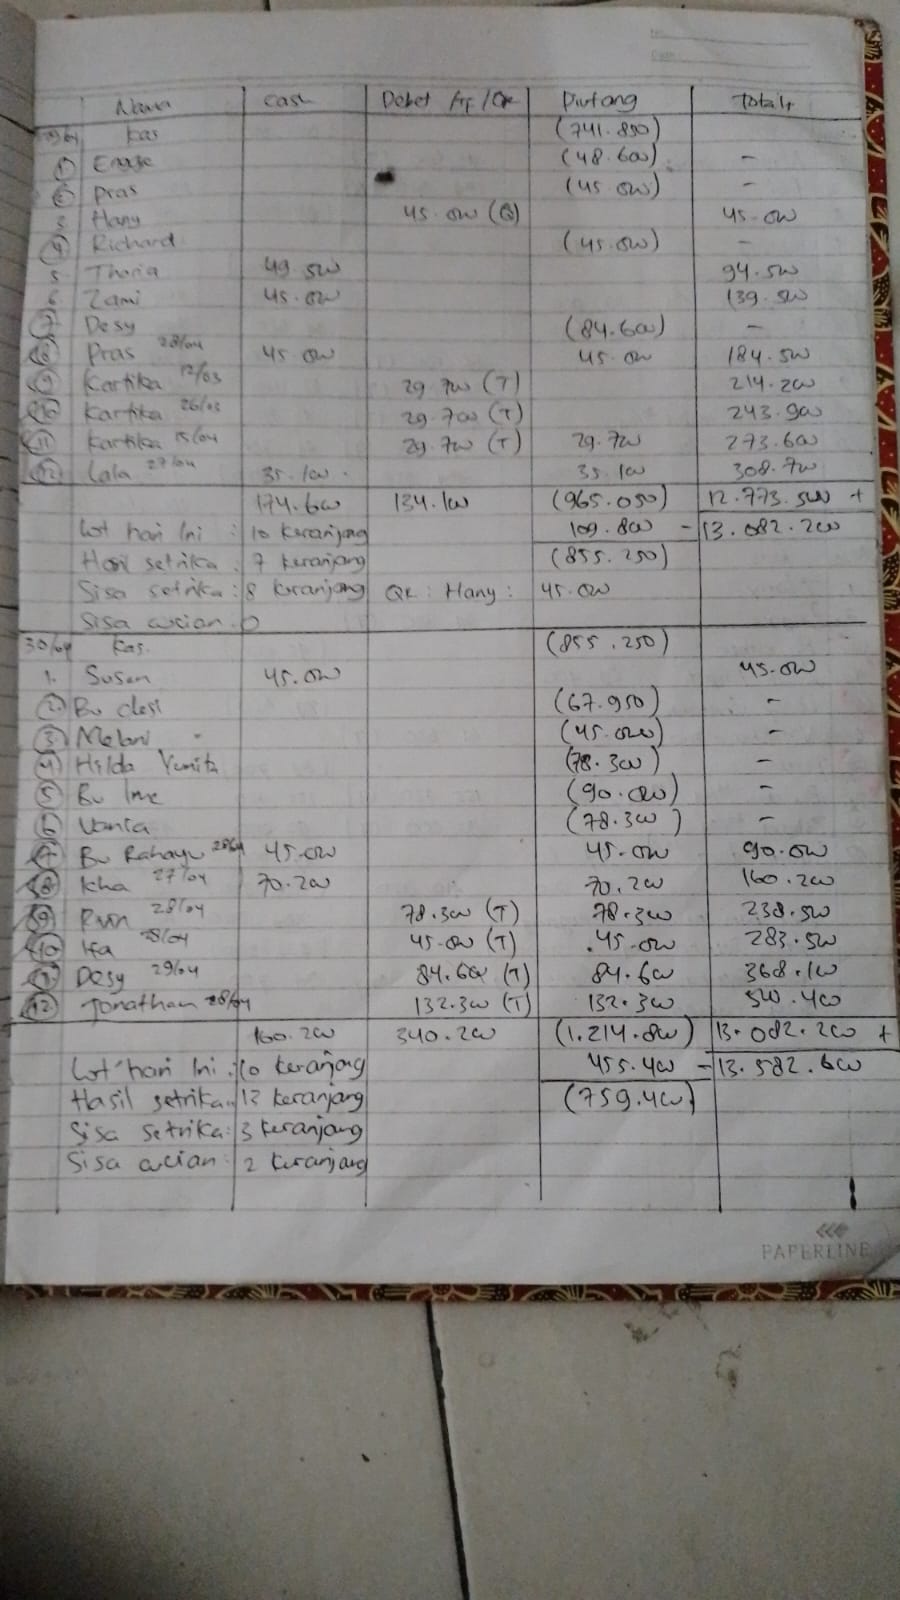 Nama Cash Debet /TF/QR Piutang Total
29/04 Kas (741.850)
1 (48.600) -
2 Pras (45.000) -
3 Hany 45.000 (Q) 45.000
4 Richard (45.000) -
5. Thoria 49.500 94.500
6 Zami 45.000 139.500
7 Desy (84.600) -
8 Pras 28/04 45.000 45.000 184.500
9 Kartika 12/03 29.700 (T) 214.200
10 Kartika 26/03 29.700 (T) 243.900
11 Kartika 15/04 29.700 (T) 29.700 273.600
12 Lala 27/04 35.100 35.100 308.700
174.600 134.100 (965.050) 12.773.500 +
Lot hari Ini : 10 keranjang 109.800 - 13.082.200
Hasil setrika : 7 keranjang (855.250)
Sisa setrika : 8 keranjang QR : Hany : 45.000
Sisa cucian : 0
30/04 Kas. (855.250)
1. Susan 45.000 45.000
2 Bu desi (67.950) -
3 Melani (45.000) -
4 Hilda Yunita (78.300) -
5 Bu Ime (90.000) -
6 Vania (78.300) -
7 Bu Rahayu 28/04 45.000 45.000 90.000
8 Kha 27/04 70.200 70.200 160.200
9 28/04 78.300 (T) 78.300 238.500
10 Ifa 45.000 (T) 45.000 283.500
11 Desy 29/04 84.600 (T) 84.600 368.100
12 Jonathan 28/04 132.300 (T) 132.300 500.400
160.200 340.200 (1.214.800) 13.082.200 +
Lot hari Ini : 10 keranjang 455.400 - 13.582.600
Hasil setrika : 12 keranjang (759.400)
Sisa setrika : 3 keranjang
Sisa cucian : 2 keranjang
PAPERLINE